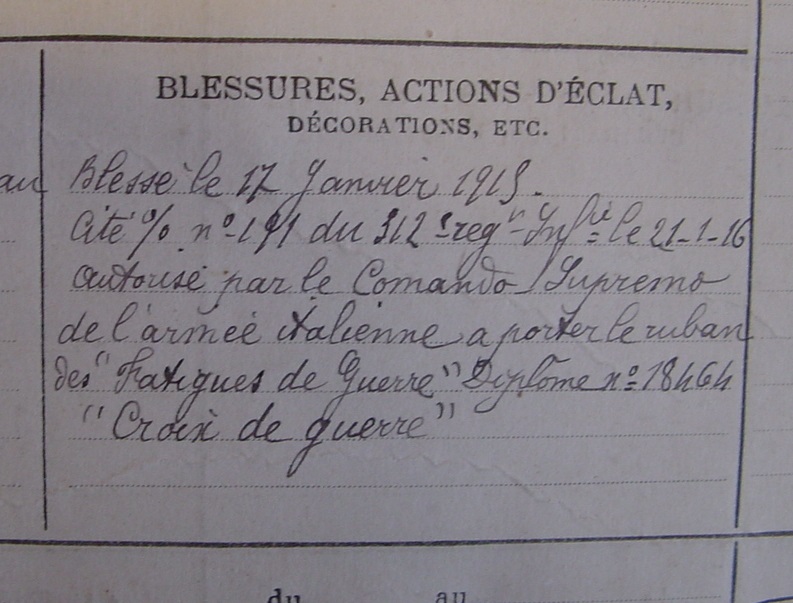 BLESSURES, ACTIONS D'ÉCLAT,
DÉCORATIONS, ETC.
au Blessé le 17 Janvier 1915.
Cité % nº 191 du 312e regt Infrie le 21-1-16
autorisé par le Comando Supremo
de l'armée italienne a porter le ruban
des "Fatigues de Guerre" Diplôme nº 18464
"Croix de guerre"
du au